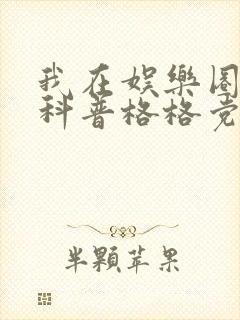 我在娱樂圈
科普格格党
半顆苹果